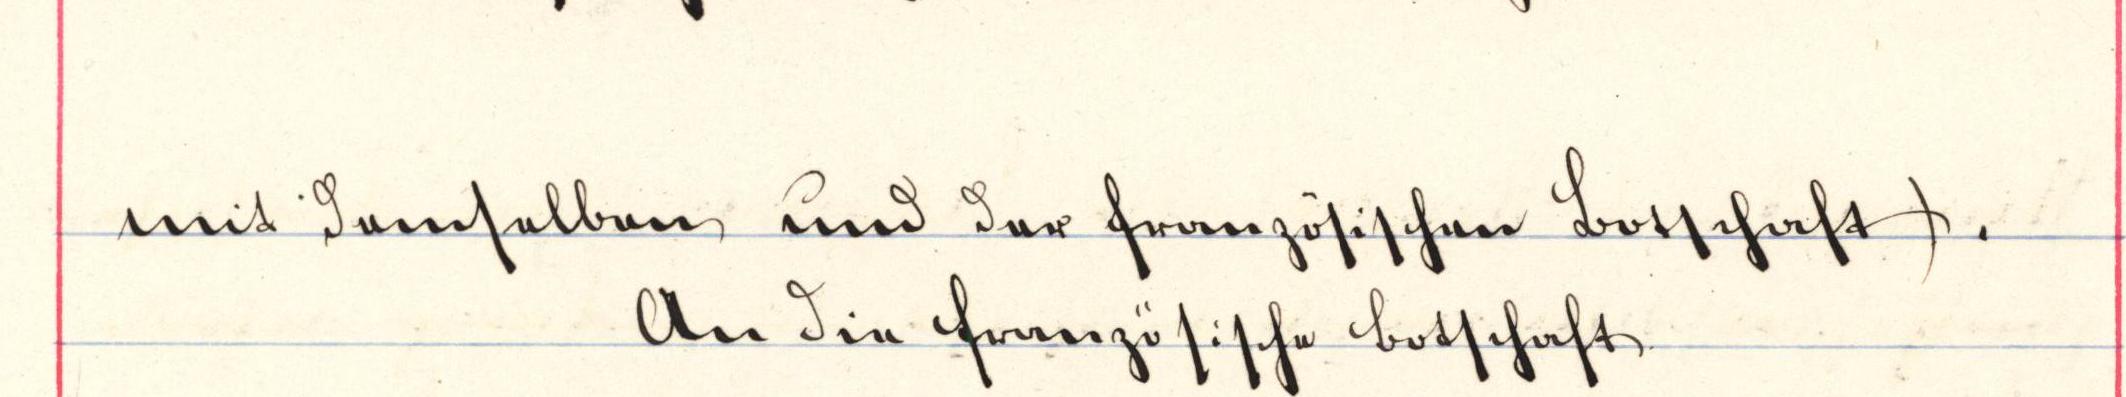 mit demselben und der französischen Botschaft).
An die französische Botschaft